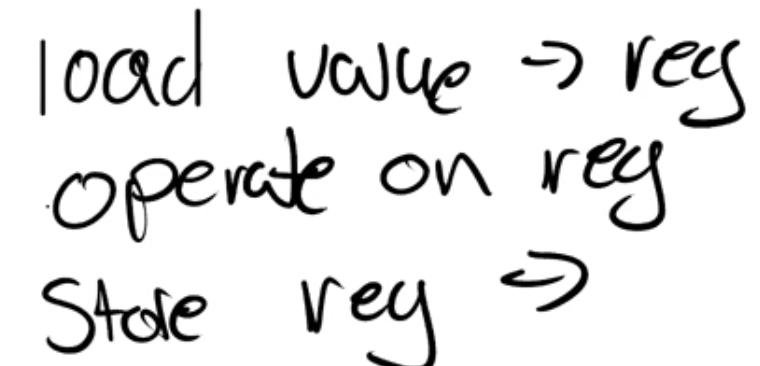 load value → reg
operate on reg
Store reg →